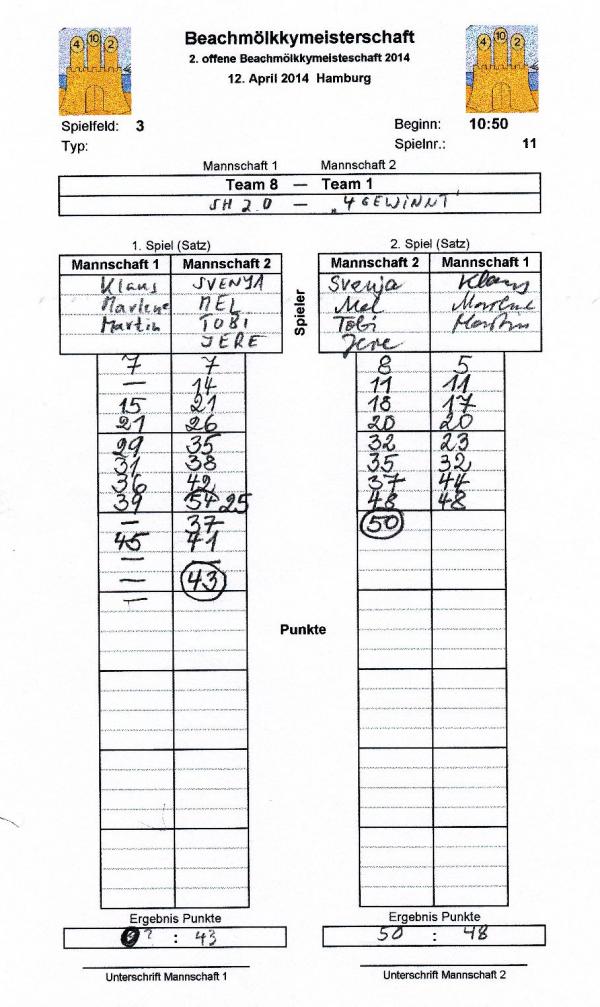 4 10 2
Beachmölkkymeisterschaft
4 10 2
2. offene Beachmölkkymeisteschaft 2014
12. April 2014 Hamburg
Spielfeld: 3 Beginn: 10:50
Typ: Spielnr.: 11
Mannschaft 1 Mannschaft 2
Team 8 — Team 1
SH 2.0 — „4 GEWINNT
1. Spiel (Satz) 2. Spiel (Satz)
Mannschaft 1 Mannschaft 2 Mannschaft 2 Mannschaft 1
Klaus SVENJA Spieler Svenja Klaus
Marlene MEL Mel Marlene
Martin TOBI Tobi Martin
JERE Jere
7 7 8 5
— 14 11 11
15 21 18 17
21 26 20 20
29 35 32 23
31 38 35 32
36 42 37 44
39 54 25 48 48
— 37 50
45 41
— —
— 43
—
Punkte
Ergebnis Punkte Ergebnis Punkte
? : 43 50 : 48
Unterschrift Mannschaft 1 Unterschrift Mannschaft 2